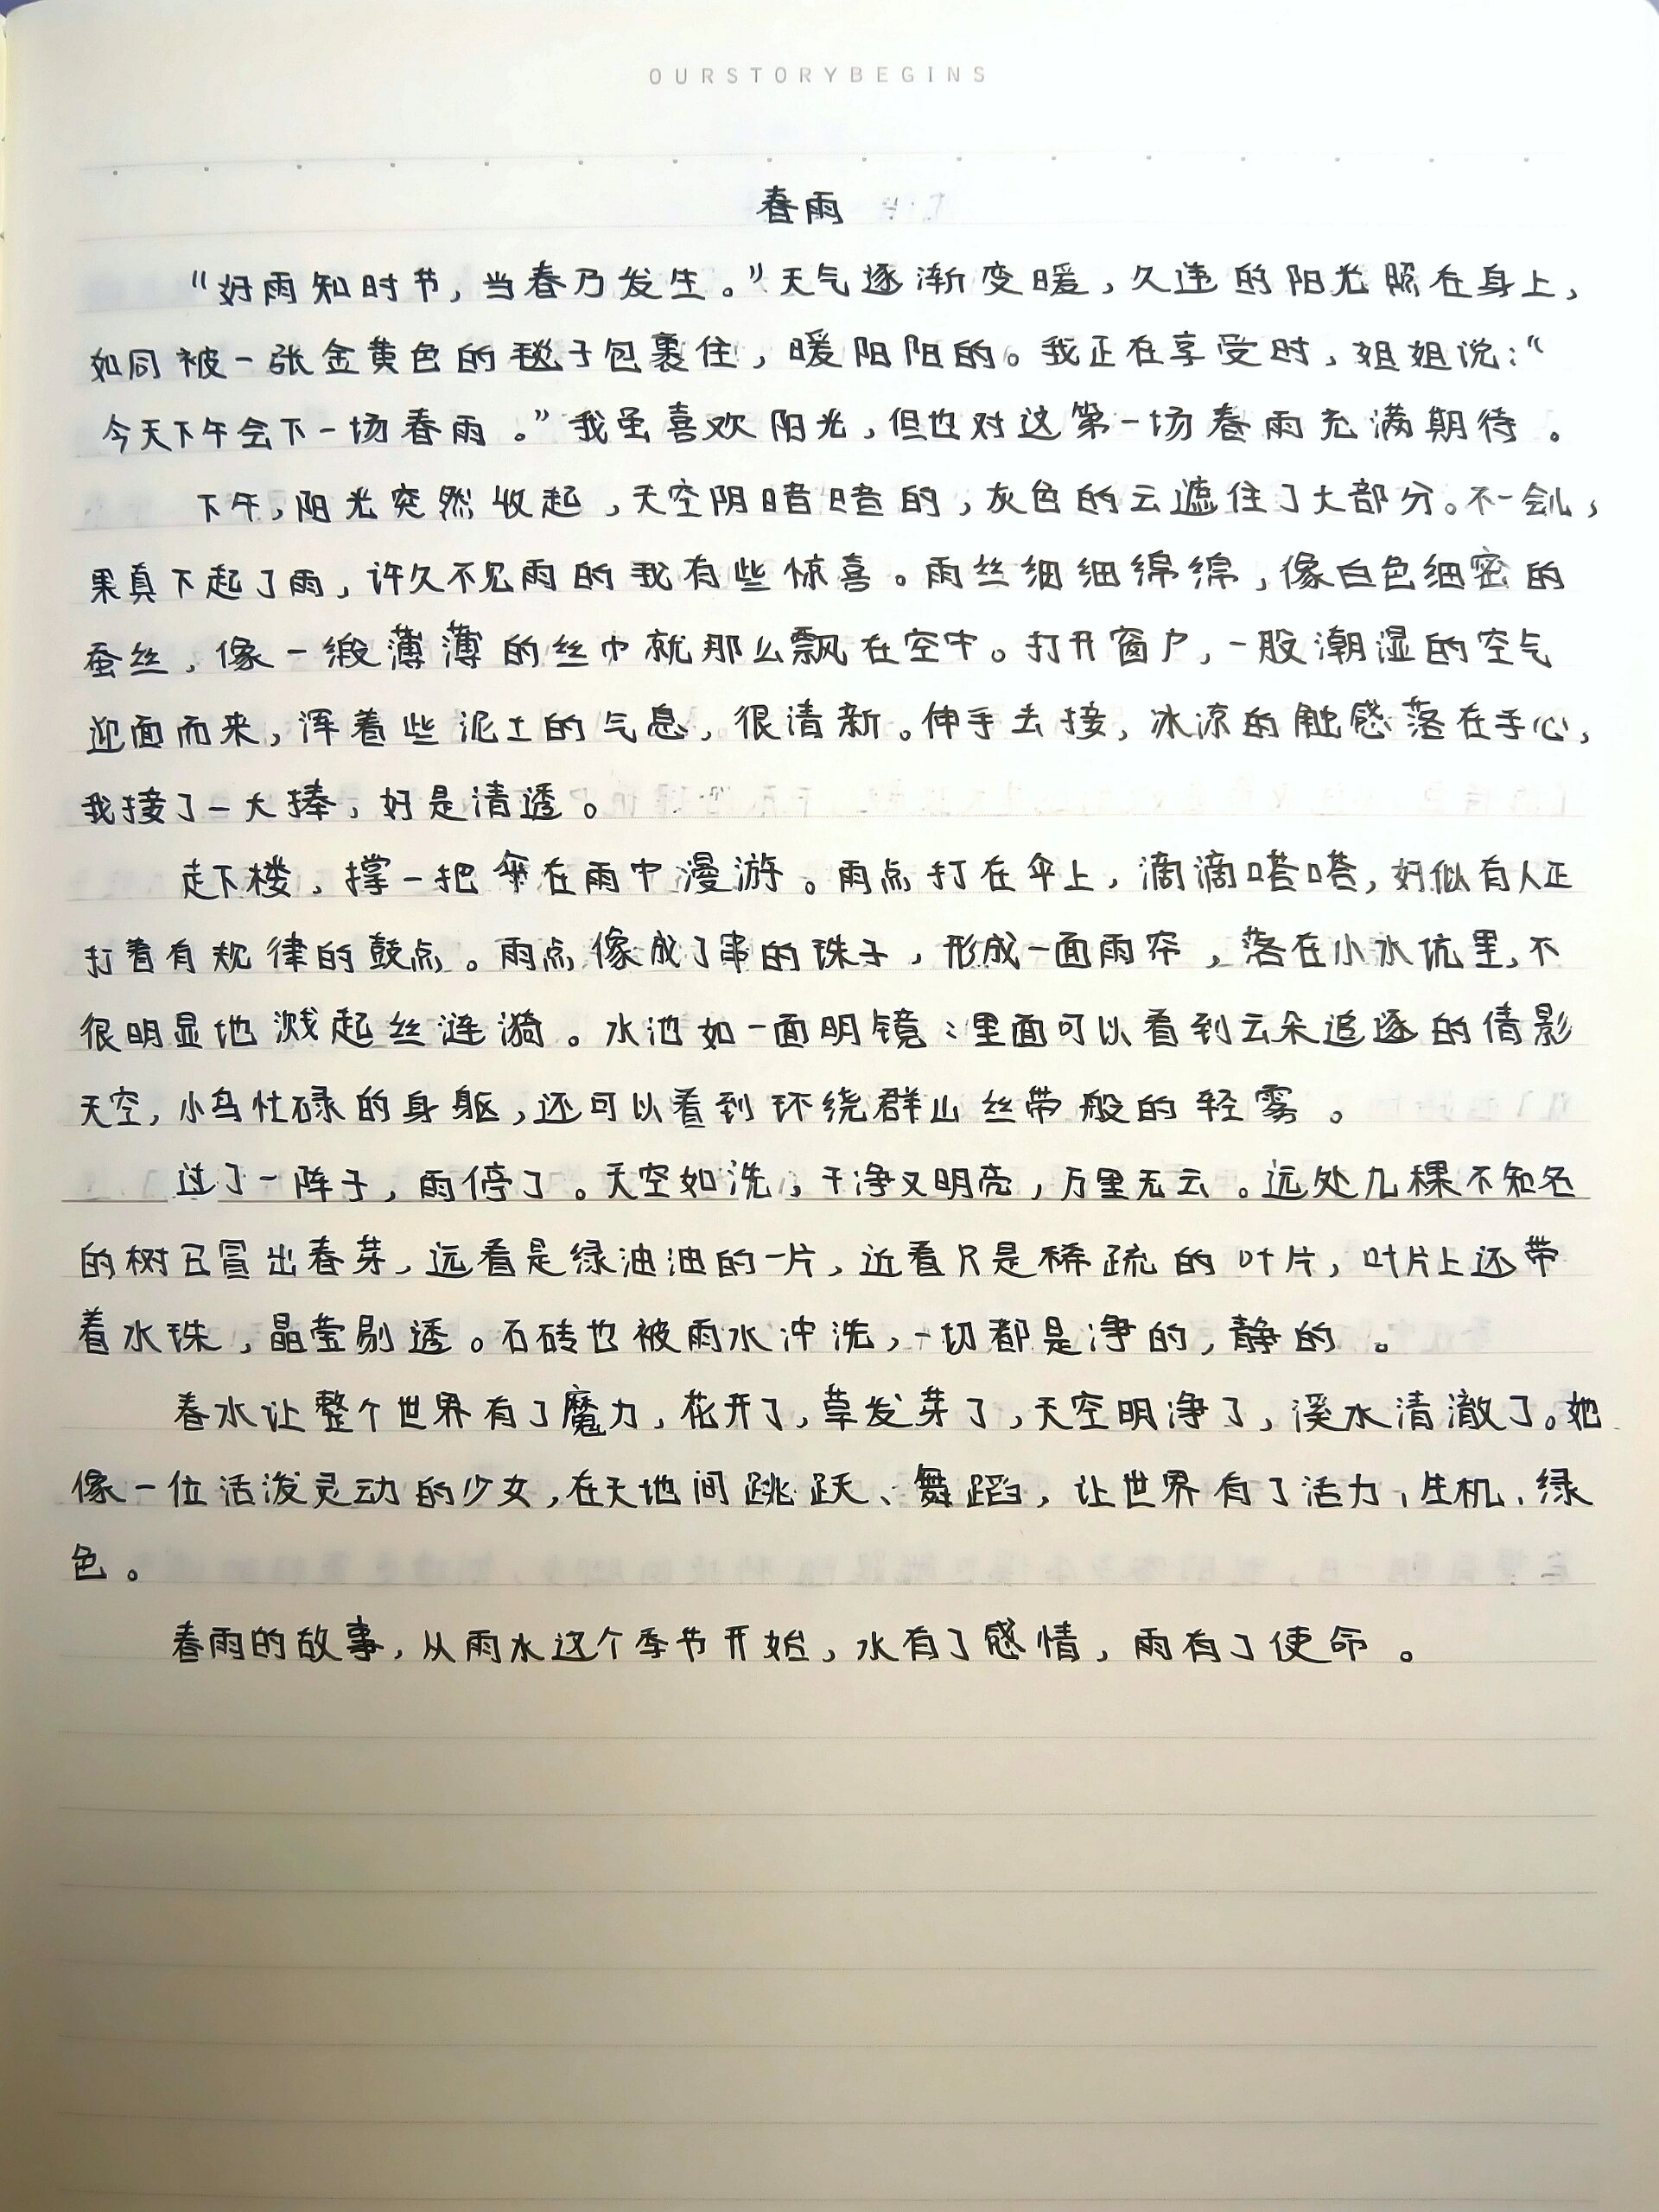 OURSTORYBEGINS
春雨
“好雨知时节，当春乃发生。”天气逐渐变暖，久违的阳光照在身上，
如同被一张金黄色的毯子包裹住，暖阳阳的。我正在享受时，姐姐说：“
今天下午会下一场春雨。”我虽喜欢阳光，但也对这第一场春雨充满期待。
下午，阳光突然收起，天空阴暗暗的，灰色的云遮住了大部分。不一会儿，
果真下起了雨，许久不见雨的我有些惊喜。雨丝细细绵绵，像白色细密的
蚕丝，像一缎薄薄的丝巾就那么飘在空中。打开窗户，一股潮湿的空气
迎面而来，浑着些泥土的气息，很清新。伸手去接，冰凉的触感落在手心，
我接了一大捧，好是清透。
走下楼，撑一把伞在雨中漫游。雨点打在伞上，滴滴嗒嗒，好似有人正
打着有规律的鼓点。雨点像成了串的珠子，形成一面雨帘，落在小水坑里，不
很明显地溅起丝涟漪。水池如一面明镜：里面可以看到云朵追逐的倩影
天空，小鸟忙碌的身躯，还可以看到环绕群山丝带般的轻雾。
过了一阵子，雨停了。天空如洗，干净又明亮，万里无云。远处几棵不知名
的树已冒出春芽，远看是绿油油的一片，近看只是稀疏的叶片，叶片上还带
着水珠，晶莹剔透。石砖也被雨水冲洗，一切都是净的，静的。
春水让整个世界有了魔力，花开了，草发芽了，天空明净了，溪水清澈了。她
像一位活泼灵动的少女，在天地间跳跃、舞蹈，让世界有了活力，生机，绿
色。
春雨的故事，从雨水这个季节开始，水有了感情，雨有了使命。